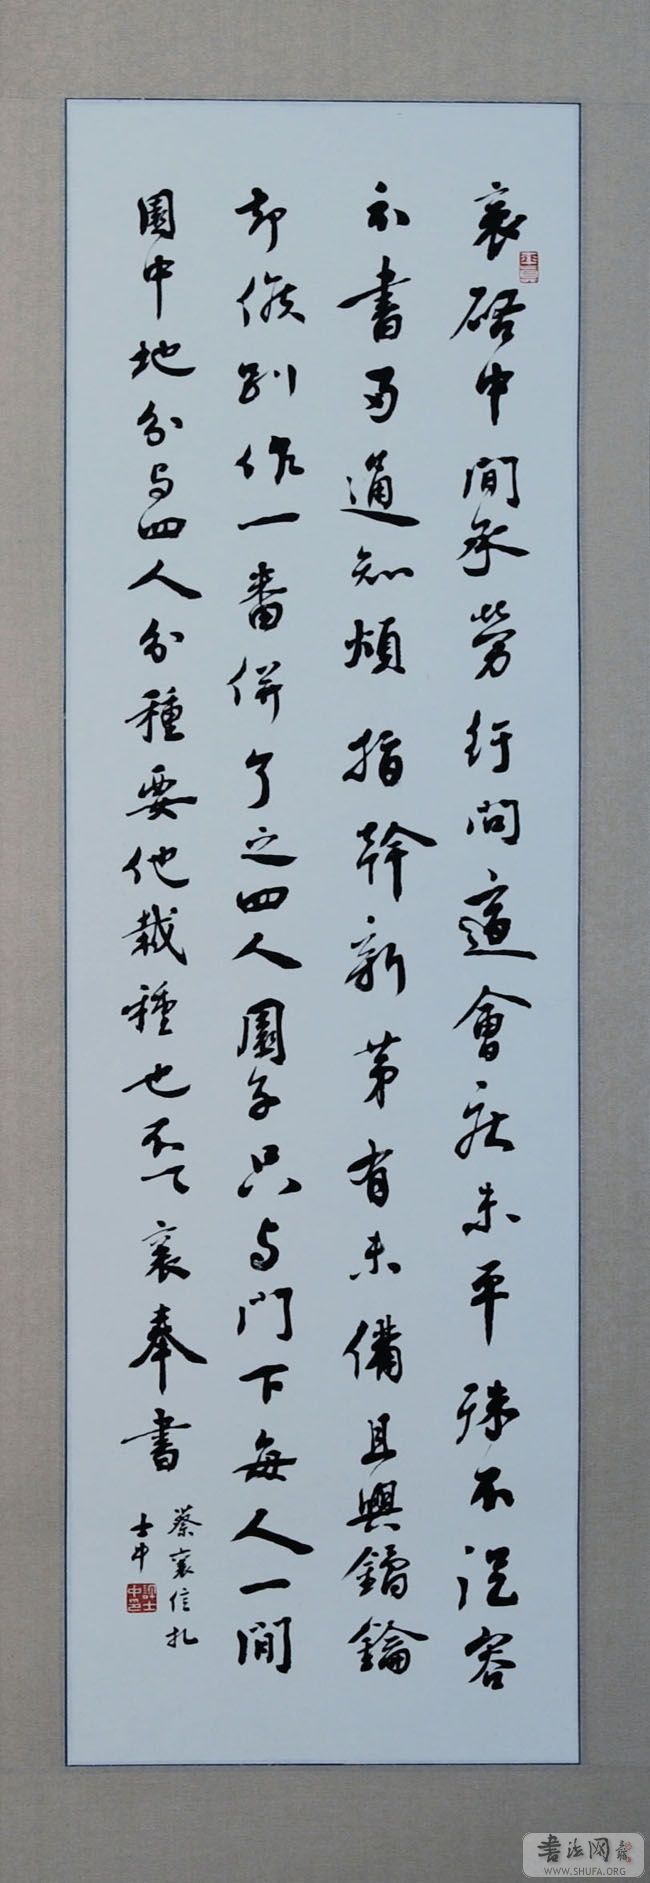 襄啓中間承勞行問適會疾未平殊不從容
不書而通知煩指幹新茅有未備且與鐍鑰
却候別作一番併了之四人園子只与門下每人一間
園中地分与四人分種要他栽種也不一一襄奉書
蔡襄信扎
士中
書法网
WWW.SHUFA.ORG